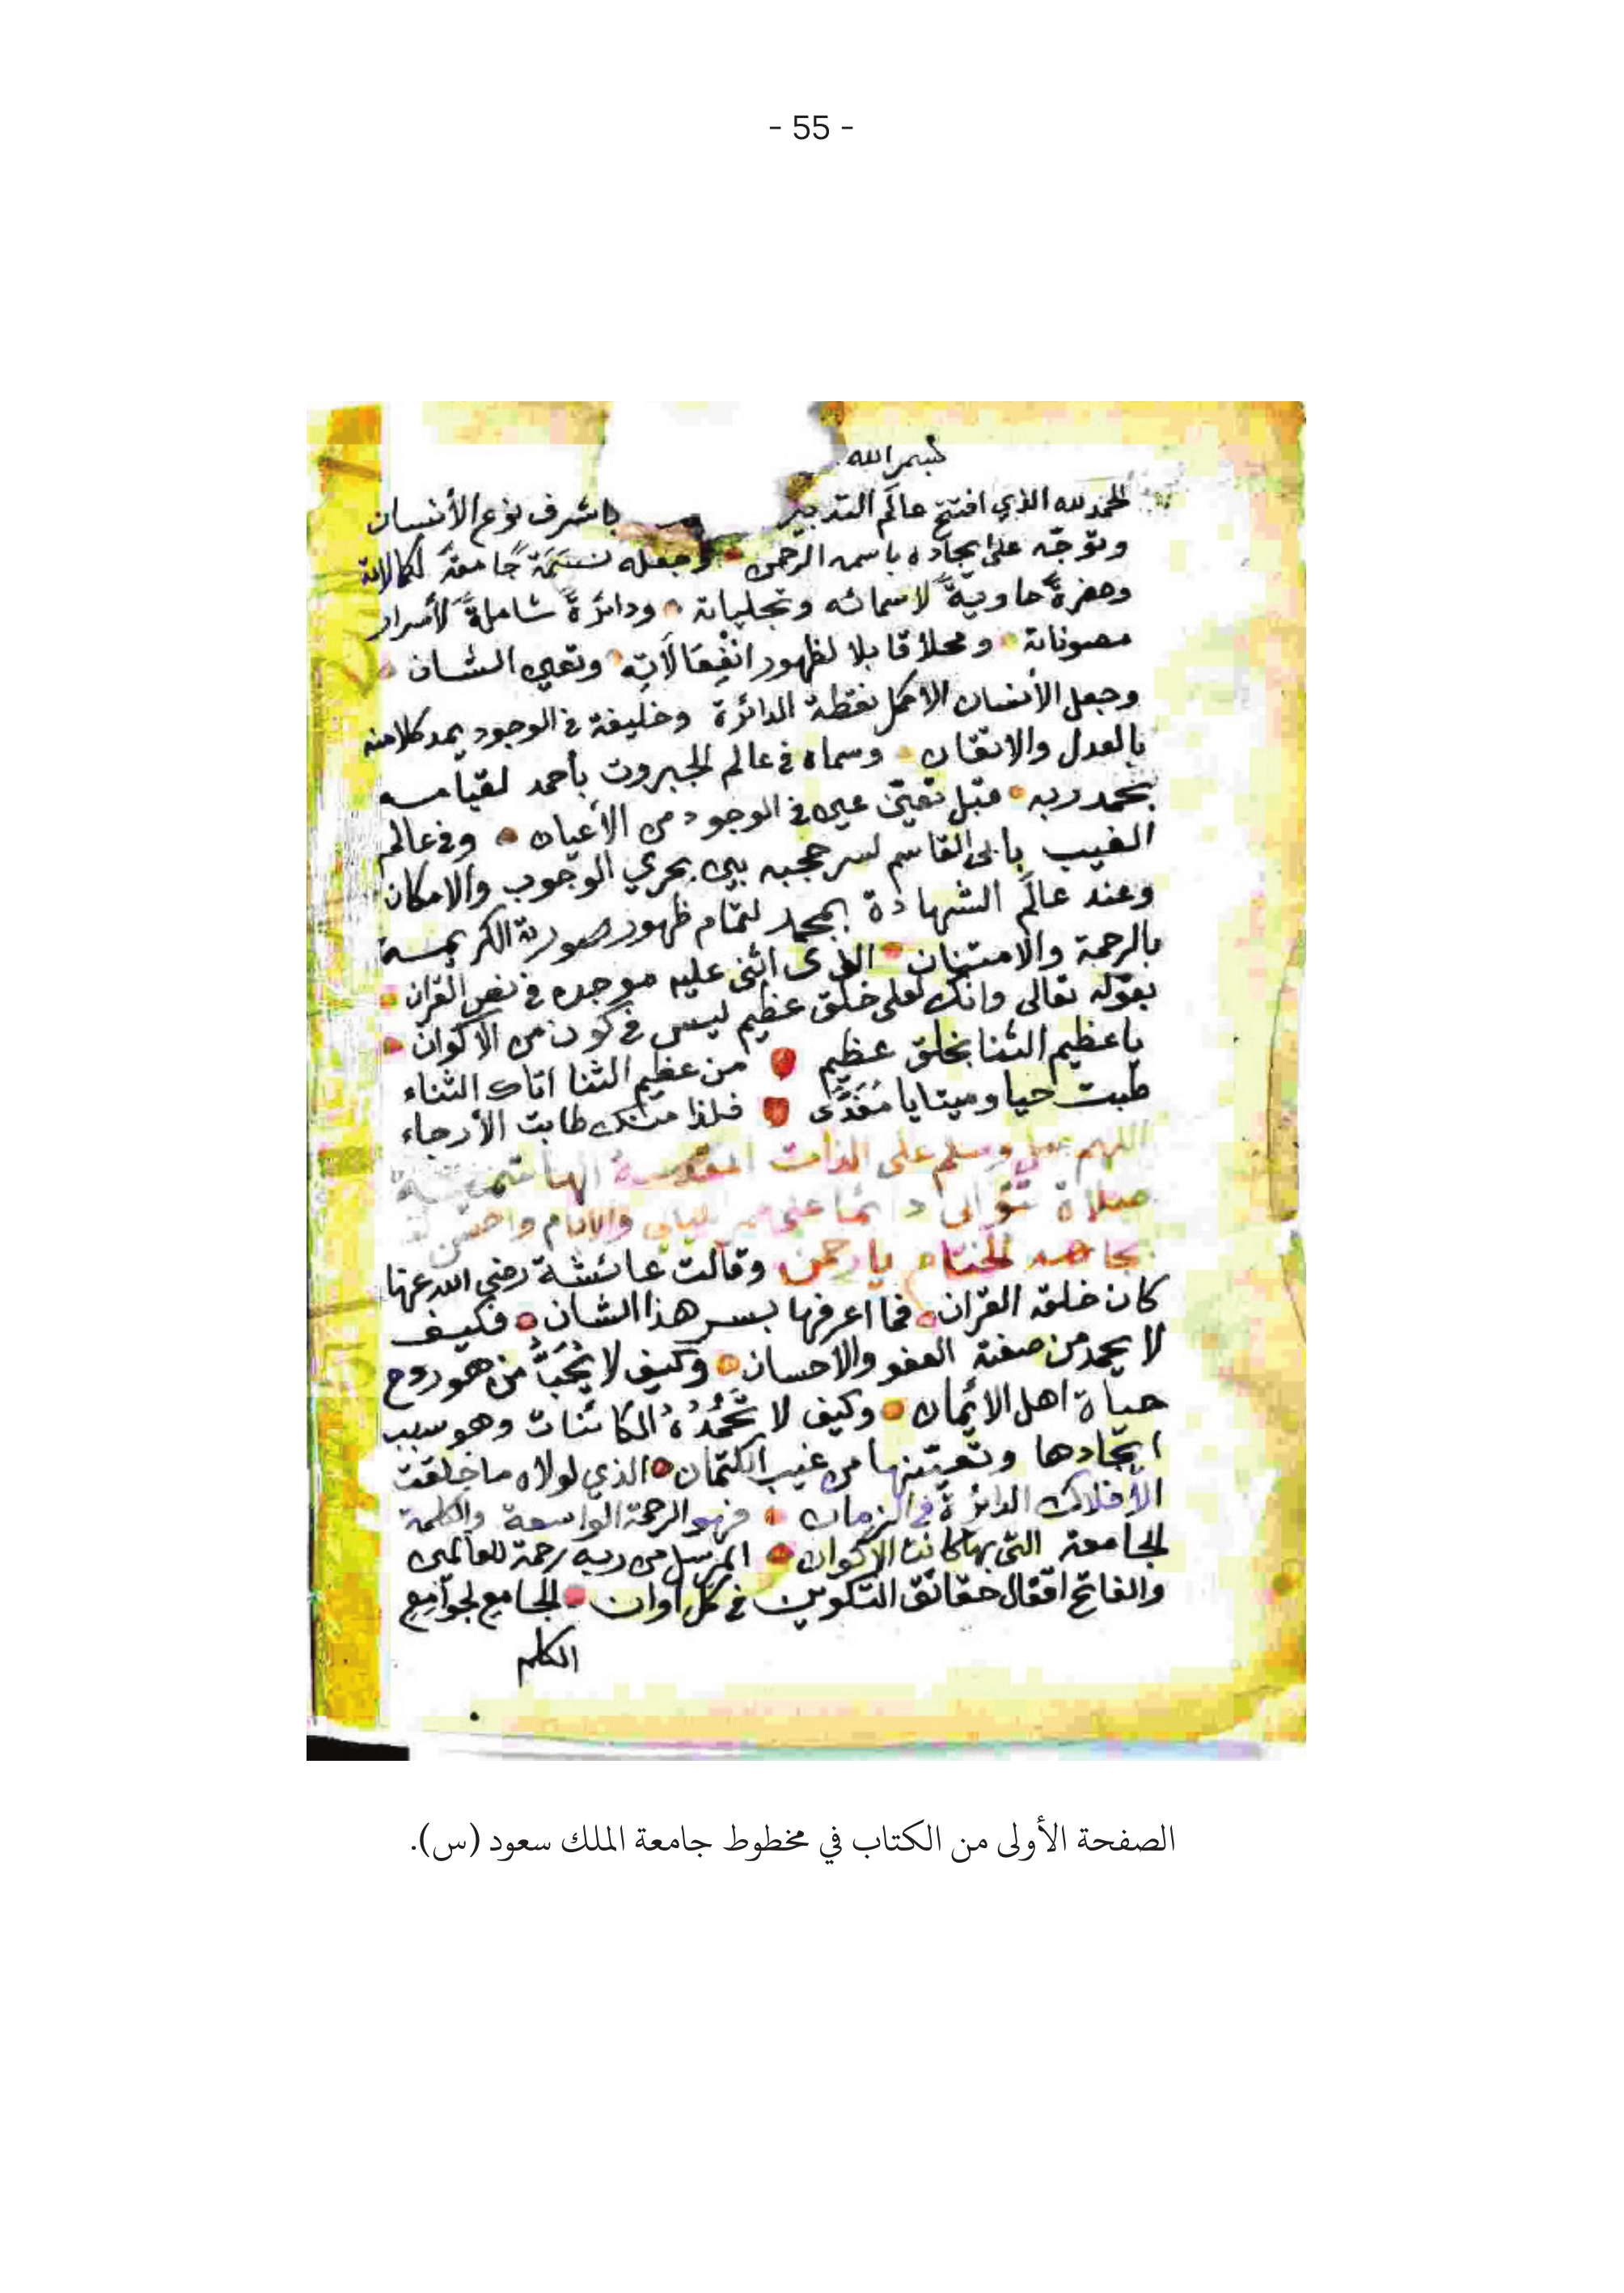 - 55 -
بسم الله
الحمد لله الذي افتتح عالم التدبير باشرف نوع الأنسان
وتوجّه على ايجاده باسمه الرحمن وجعله نسمَة جامعةً لكمالاته
وحضرةً حاويةً لاسمائه وتجلياته ودائرةً شاملةً لأسرار
مصوناته ومحلا قابلا لظهور انفعالاته وتعين الشان
وجعل الأنسان الاكمل نقطة الدائرة وخليفة في الوجود يمد كلا منه
بالعدل والاتقان وسماه في عالم الجبروت بأحمد لقيامه
بحمد ربه قبل تعين عين في الوجود من الأعيان وفي عالم
الغيب بابى القاسم لسر حجبه بين بحري الوجوب والامكان
وعند عالم الشهادة بمحمد لتمام ظهور صورته الكريمة
بالرحمة والامتنان الذى اثنى عليه موجده في نص القران
بقوله تعالى وانك لعلى خلق عظيم ليس في كون من الاكوان
يا عظيم الثنا بخلق عظيم من عظيم الثنا اتاك الثناء
طبت حيا وميتا يا مُفَدَّى فلذا منك طابت الأرجاء
اللهم صل وسلم على الذات المقدسة الها
صلاة تتوالى دائما على ممر الليالي والايام واحسن
بجاهه الختام يا رحمن وقالت عائشة رضي الله عنها
كان خلقه القران فما اعرفها بسر هذا الشان فكيف
لا يحمد من صفته العفو والاحسان وكيف لا يُحَبُّ من هو روح
حياة اهل الأيمان وكيف لا تَحْمَدُهُ الكائنات وهو سبب
ايجادها وتعيّنها من غيب الكتمان الذي لولاه ما خلقت
الأفلاك الدائرة في الزمان فهو الرحمة الواسعة والكلمة
الجامعة التى بها كانت الاكوان المرسل من ربه رحمة للعالمين
والفاتح اقفال حقائق التكوين في كل اوان الجامع لجوامع
الكلم
الصفحة الأولى من الكتاب في مخطوط جامعة الملك سعود (س).